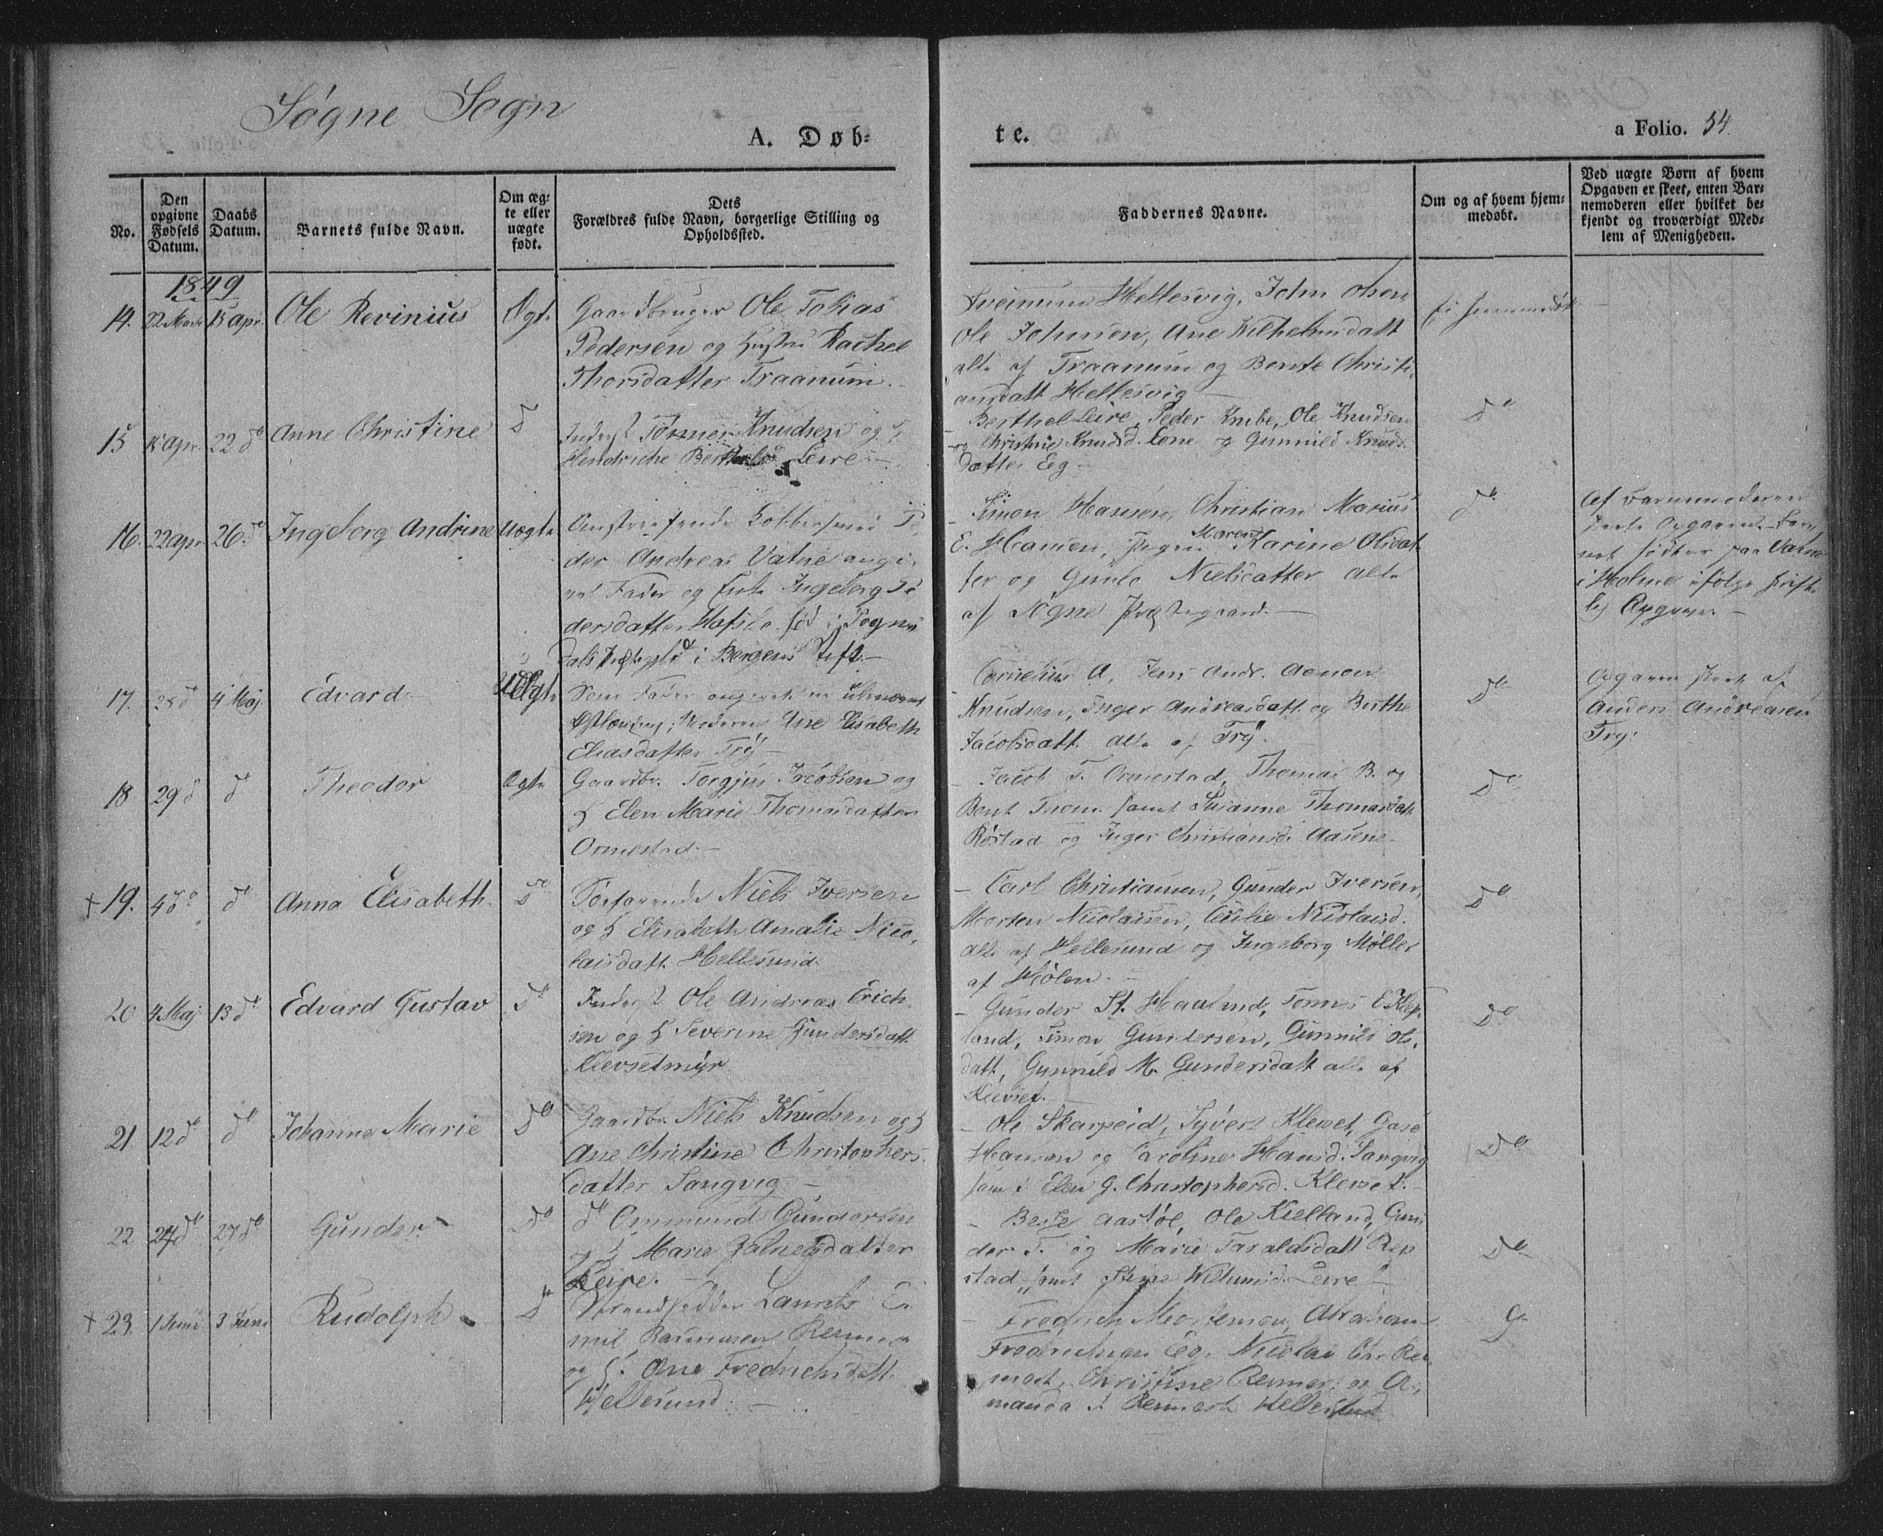 Søgne Sogn
A. Døb-
te.
a Folio. 54
No.
Den opgivne Fødsels Datum.
Daabs Datum.
Barnets fulde Navn.
Om ægte eller uægte født.
Dets Forældres fulde Navn, borgerlige Stilling og Opholdssted.
Faddernes Navne.
Om og af hvem hjemmedøbt.
Ved uægte Børn af hvem Opgaven er skeet, enten Barnemoderen eller hvilket bekjendt og troværdigt Medlem af Menigheden.
1849
14. 22 Marts 15 apr. Ole Revinius Ægt. Gaardbruger Ole Tobias
Pedersen og Hustru Rachel
Thorsdatter Traanum.
Hellesvig, John Olsen
Ole Johnsen, Ane Wilhelmsdatt
alle af Traanum og Bente Christi-
ansdatt Hellesvig
15 15 apr. 22 do Anne Christine Do Inderst Tønnes Knudsen og H
Hendriche Leire
Berthel Leire, Peder Knibe, Ole Knudsen
og Christine Knudsd. Lone og Gunnild Knuds-
datter Eeg
Do
16. 22 apr. 26 do Ingeborg Andrine Uægte Omstreifende Kobbersmed Pe-
der Andreas Vatne angi-
vet Fader og Ingeborg Pe-
dersdatter fød i Sogne-
dals i Bergens Stift
Simon Hansen, Christian Marius
E. Hansen, Maren Karine Olsdat-
ter og Gunild Nielsdatter alle
af Søgne Præstegaard.
Do
Af Barnemoderen
skeete Opgaven. Bar-
net fødtes paa Vatne
i Holme ifølge skrift-
lig Opgave.
17. 28 do 4 Maj Edvard Uægte Som Fader angivet
Moderen Ane Elisabeth
Eliasdatter Try
Cornelius A, Jens Andr. Aanon
Knudsen, Inger Andreasdatt. og Berthe
Jacobsdatt. alle af Try.
Do
Opgaven skeet af
Anders Andreasen
Try.
18 29 do do Theodor Ægte Gaardbr. Torgjus Jacobsen og
H Elen Marie Thomasdatter
Ormestad.
Jacob T. Ormestad, Thomas B. og
Bent Thom. samt Susanne Thomasdatt
Røstad og Inger Christiansd. Aasene
Do
† 19. 4 do do Anna Elisabeth Do Søefarende Niels Iversen
og H Elisabeth Amalie Nico-
laisdatt Hellesund
Carl Christiansen, Gunder Iversen,
Morten Nicolaisen, Cicilie Nicolaisd.
alle af Hellesund og Ingeborg Møller
af Hølen.
Do
20 4 Maj 13 do Edvard Gustav Do Inderst Ole Andreas Erich-
sen og H Severine Gundersdatt
Klevsetmyr
Gunder St. Haalund, Tønnes E. Klep-
land, Simon Gundersen, Gunnild Ols-
datt, Gunnild M. Gundersdatt alle af
Klevset.
Do
21. 12 do do Johanne Marie Do Gaardbr. Niels Knudsen og H
Ane Christine Christophers-
datter Langvig
Ole Skarpeid, Syvert Klevset,
Hansen og Caroline Hansd. Langvig
samt Elen G. Christophersd. Klevset.
Do
22 24 do 27 do Gunder Do do Ommund Gundersen
og H Marie
Leire.
Aastøl, Ole Kielland, Gun-
der T. og Marie Taraldsdatt Rep-
stad, samt Stine Leire
Do
† 23. 1 Juni 3 Juni Rudolph Do Strandsidder Laurits E-
mil Rasmussen
og H. Ane Fredrichsdatt.
Hellesund.
Fredrich Mortensen, Abraham
Fredrichsen Eeg, Nicolai Chr. Rei-
mert, Christine Reimert og A-
manda J Reimert Hellesund